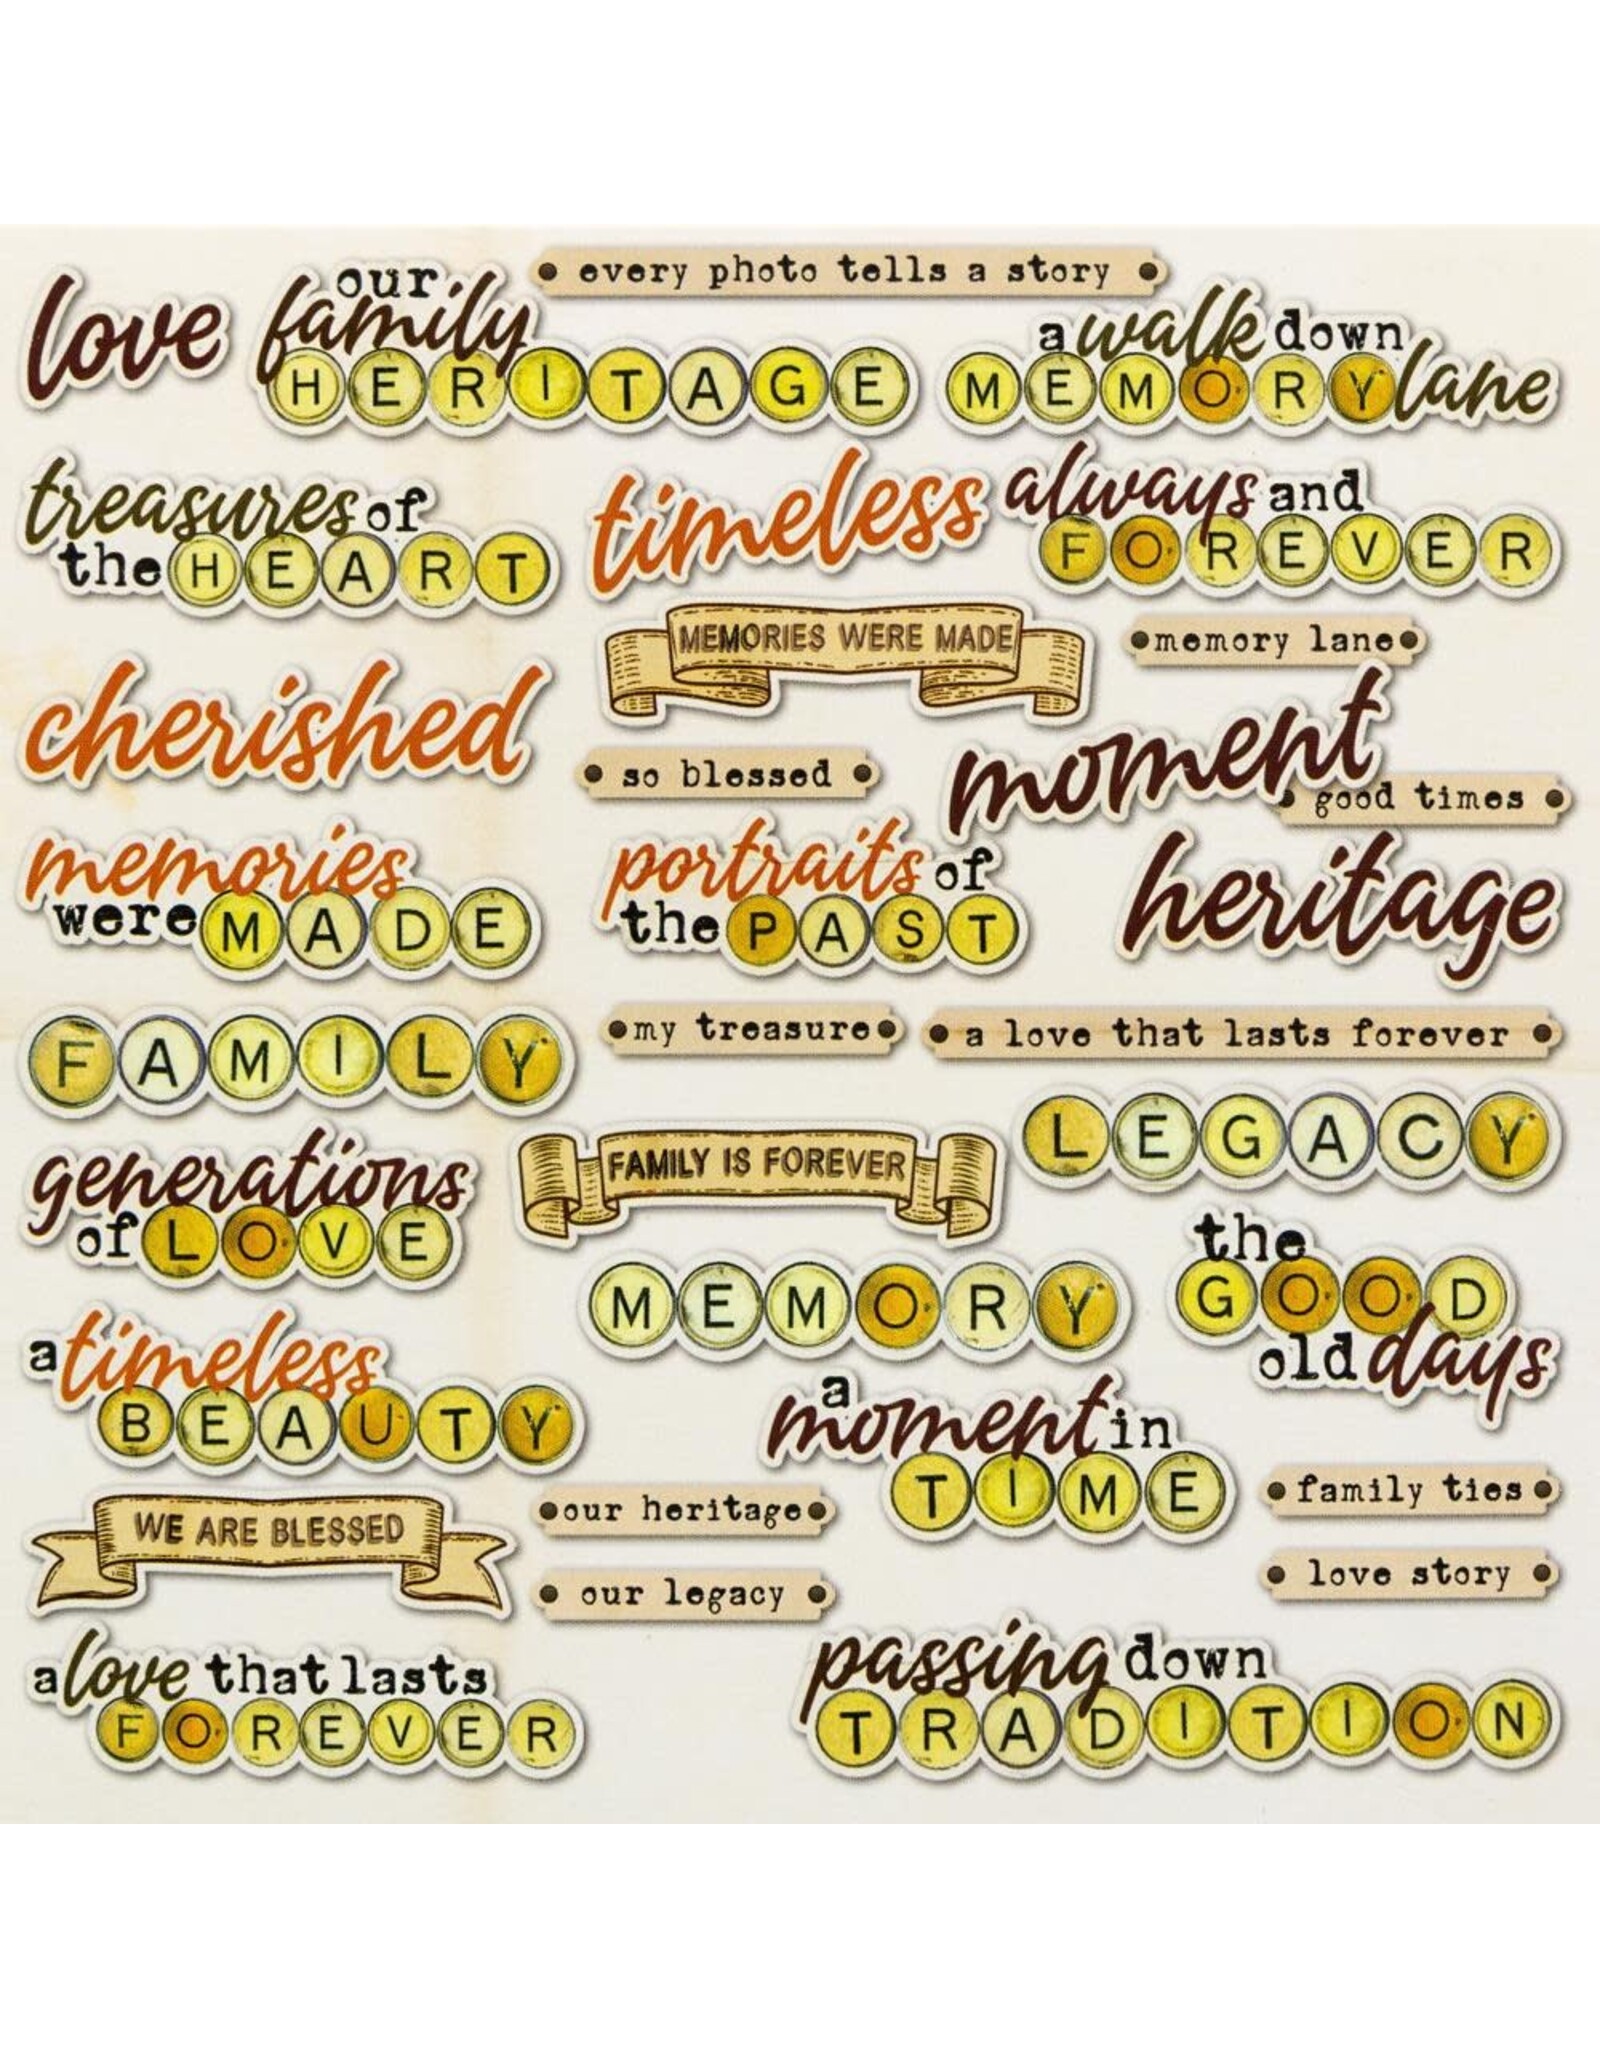 love
our
family
HERITAGE
every photo tells a story
a walk down
MEMORY lane
treasures of
the HEART
timeless
always and
FOREVER
MEMORIES WERE MADE
memory lane
cherished
so blessed
moment
good times
memories
were MADE
portraits of
the PAST
heritage
FAMILY
my treasure
a love that lasts forever
LEGACY
generations
of LOVE
FAMILY IS FOREVER
MEMORY
the
GOOD
old days
a timeless
BEAUTY
a
moment in
TIME
WE ARE BLESSED
our heritage
family ties
our legacy
love story
a love that lasts
FOREVER
passing down
TRADITION